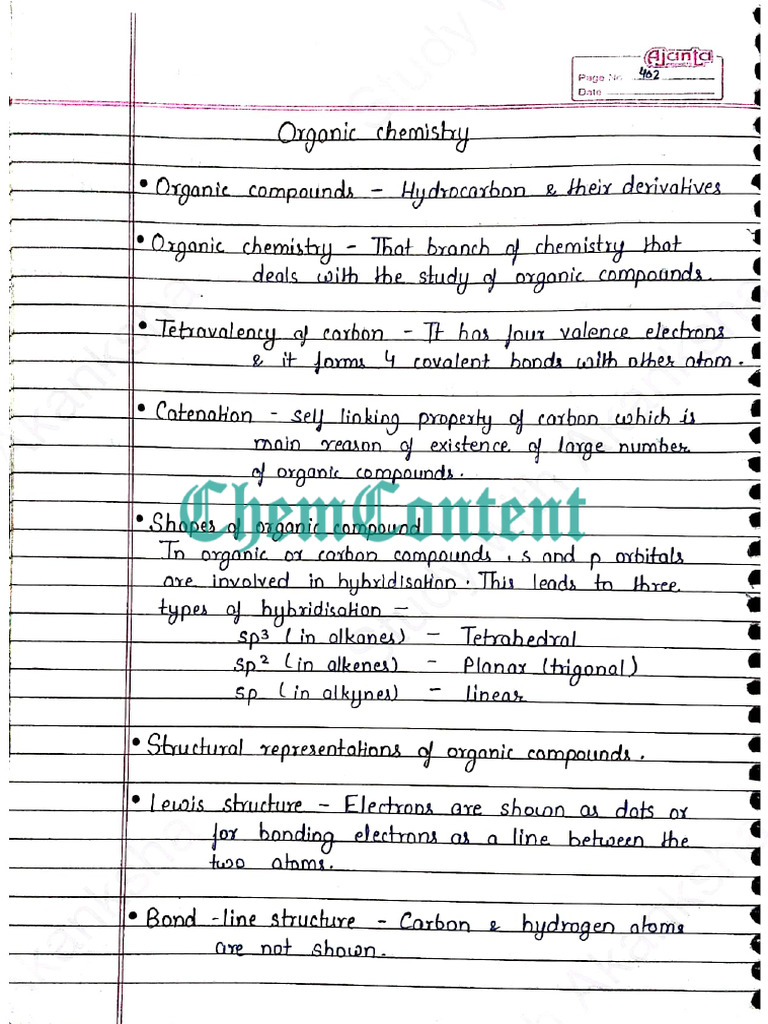 Ajanta
Page No. 402
Date
Organic chemistry
• Organic compounds - Hydrocarbon & their derivatives
• Organic chemistry - That branch of chemistry that
deals with the study of organic compounds.
• Tetravalency of carbon - It has four valence electrons
& it forms 4 covalent bonds with other atom.
• Catenation - self linking property of carbon which is
main reason of existence of large number
of organic compounds.
ChemContent
• Shapes of organic compound
In organic or carbon compounds, s and p orbitals
are involved in hybridisation. This leads to three
types of hybridisation -
sp3 (in alkanes) - Tetrahedral
sp2 (in alkenes) - Planar (trigonal)
sp (in alkynes) - linear
• Structural representations of organic compounds.
• Lewis structure - Electrons are shown as dots or
for bonding electrons as a line between the
two atoms.
• Bond-line structure - Carbon & hydrogen atoms
are not shown.